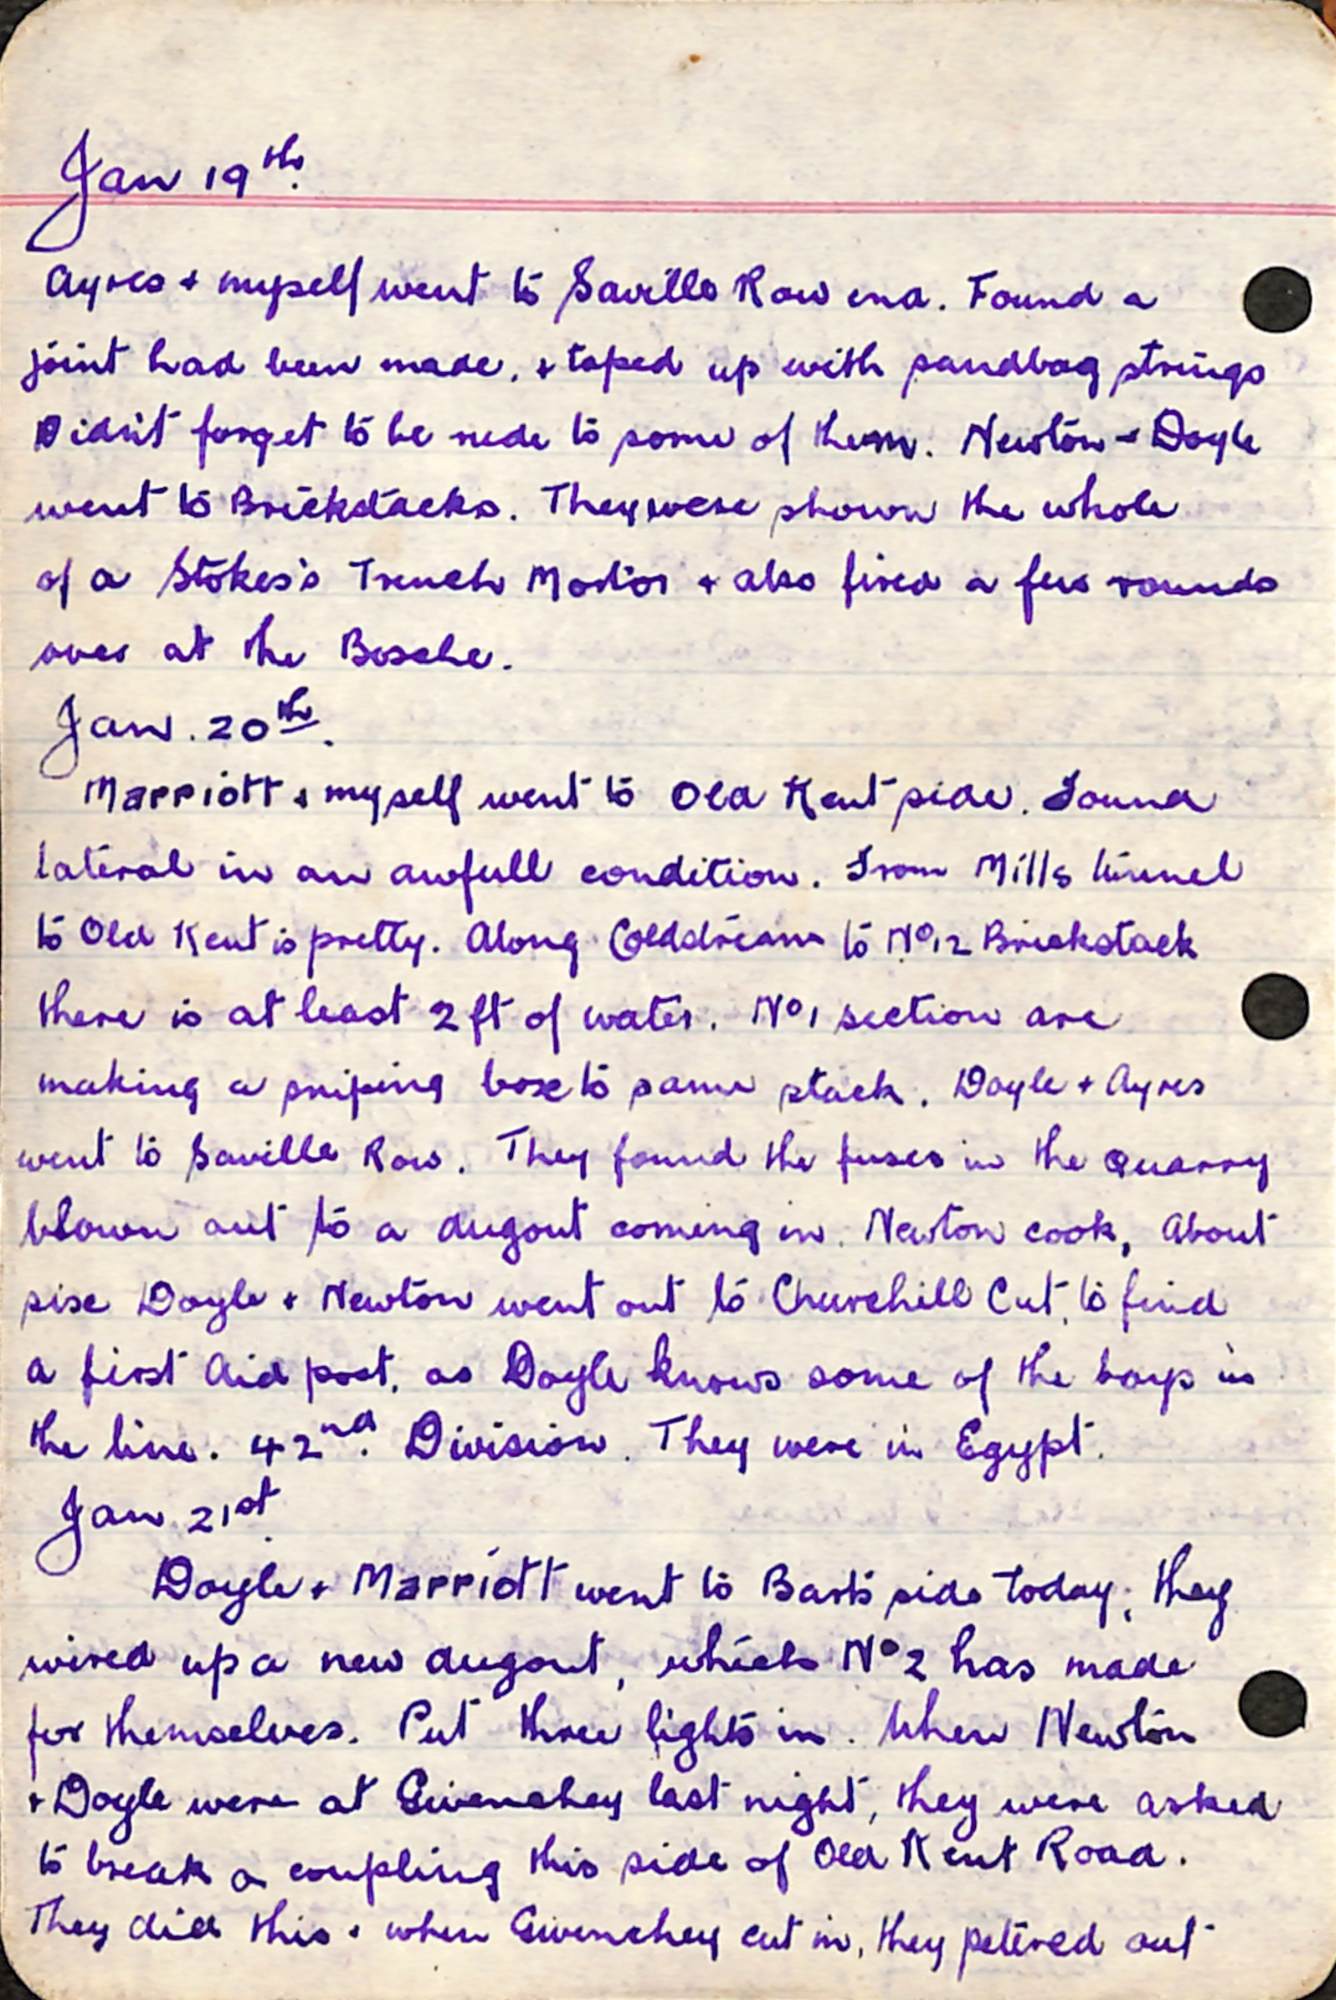 Jan 19th.
Ayres + myself went to Saville Row end. Found a
joint had been made, + taped up with sandbag strings
Didn't forget to be rude to some of them. Newton + Doyle
went to Brickstacks. They were shown the whole
of a Stokes's Trench Mortor + also fired a few rounds
over at the Bosche.
Jan. 20th.
Marriott + myself went to Old Kent side. Found
lateral in an awfull condition. From Mills tunnel
to Old Kent is pretty. Along Colddream to No 12 Brickstack
there is at least 2 ft of water. No 1 section are
making a sniping boxe to same stack. Doyle + Ayres
went to Saville Row. They found the fuses in the Quarry
blown out to a dugout coming in. Newton cook, About
sixe Doyle + Newton went out to Churchill Cut, to find
a first Aid post, as Doyle knows some of the boys in
the line. 42nd. Division. They were in Egypt.
Jan 21st.
Doyle + Marriott went to Barts side today, they
wired up a new dugout, which No 2 has made
for themselves. Put three lights in. When Newton
+ Doyle were at Givenchey last night, they were asked
to break a coupling this side of Old Kent Road.
They did this + when Givenchey cut in, they petered out